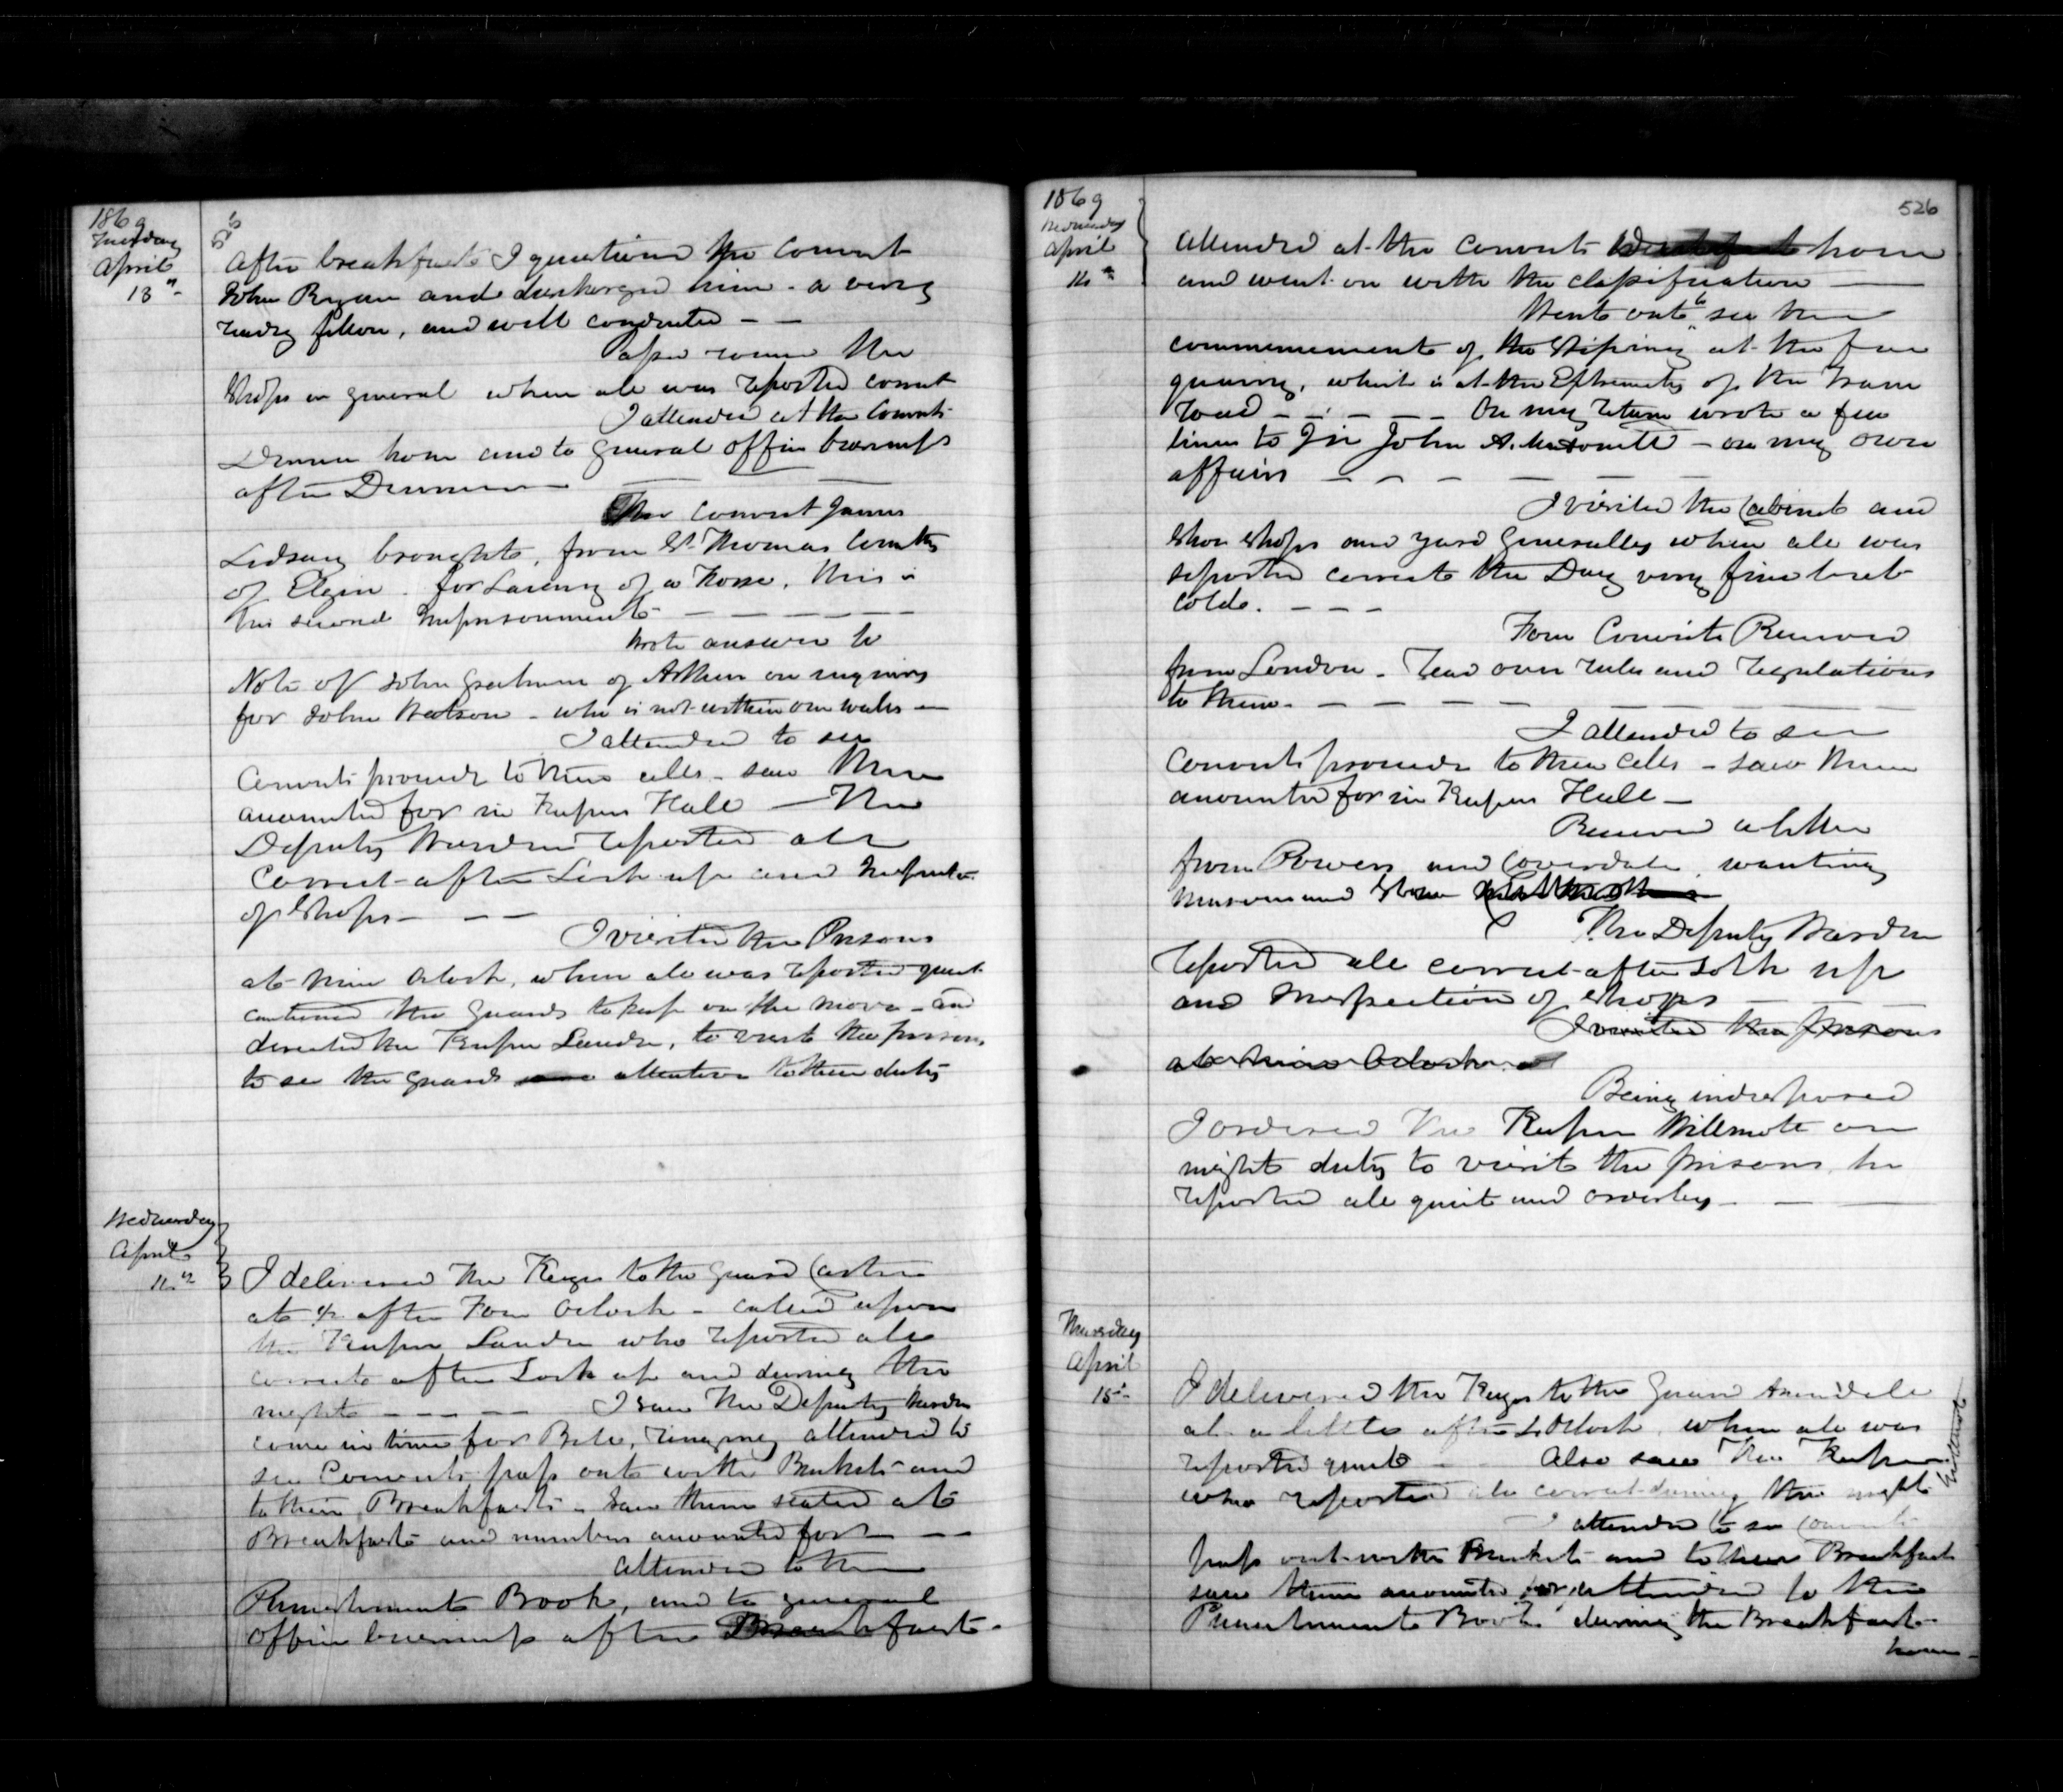 1869
Tuesday
April
13th
After breakfast I questioned the Convict
John Ryan and discharged him - a very
ready fellow, and well conducted - -
Pass round the
Shops in general when all was reported correct
I attended at the Convicts
Dinner hour and to general office business
after Dinner
The Convict James
Lidsay brought, from St. Thomas County
of Elgin - for Larceny of a Horse, this is
his second Imprisonment -
Wrote answer to
Note of John Graham of Athens on inquiry
for John Watson - who is not within our walls -
I attended to see
Convicts proceed to their cells - saw them
accounted for in Keepers Hall - The
Deputy Warden reported all
Correct after Lock up and Inspection
of Shops - - -
I visited the Prisons
at nine Oclock, when all was reported quiet
cautioned the Guards to keep on the move - and
directed the Keeper to visit the prisons
to see the guards attentive to their duty
Wednesday
April
14th
I delivered the Keys to the Guard
at 1/2 after Four Oclock - called upon
the Keeper who reported all
correct after Lock up and during the
night - - - - - I saw the Deputy Warden
come in time for Bell, ringing attended to
see Convicts pass out with Buckets and
to their Breakfast - saw them seated at
Breakfast and numbers accounted for - -
Attended to the
Punishment Book, and to general
office business after Breakfast -
1869
Wednesday
April
14th
526
Attended at the Convicts hour
and went on with the classification
Went out to see the
commencement of the Striping at the free
quarry, which is at the Extremity of the Tram
road - - - - - On my return wrote a few
lines to Sir John A. Macdonald - on my own
affairs - - - -
I visited the Cabinet and
Shoe Shops and yard Generally when all was
reported correct the Day very fine but
cold. - - -
Four Convicts Received
from London - read over rules and regulations
to them - - - -
I attended to see
Convicts proceed to their cells - saw them
accounted for in Keepers Hall -
Received a letter
from Powers and Coverdale, wanting
measured Stone
The Deputy Warden
reported all correct after Lock up
and Inspection of Shops
I visited the prisons
at nine Oclock
Being indisposed
I ordered the Keeper Willmott on
night duty to visit the prisons, he
reported all quiet and orderly - -
Thursday
April
15th
I delivered the Keys to the Guard
at a little after Oclock, when all was
reported quiet - Also saw the Keeper Willmott
who reported all correct during the night
I attended to see Convicts
pass out with Buckets and to their Breakfast
saw them accounted for, attended to the
Punishment Book during the Breakfast
hour -